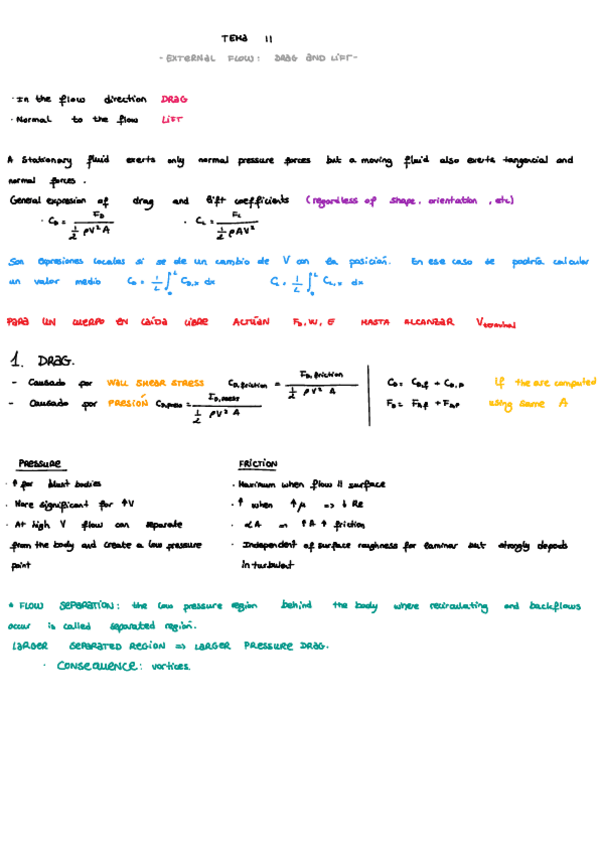 TEMA 11
- EXTERNAL FLOW: DRAG AND LIFT -
· In the flow direction DRAG
· Normal to the flow LIFT
A stationary fluid exerts only normal pressure forces but a moving fluid also exerts tangencial and
normal forces.
General expresion of drag and lift coefficients (regardless of shape, orientation, etc)
· C_D = F_D / (1/2 ρV²A) · C_L = F_L / (1/2 ρAV²)
Son expresiones locales si se de un cambio de V con la posición. En ese caso se podría calcular
un valor medio C_D = 1/L ∫₀ᴸ C_D,x dx C_L = 1/L ∫₀ᴸ C_L,x dx
PARA UN CUERPO EN CAÍDA LIBRE ACTÚAN F_D, W, E HASTA ALCANZAR V_terminal
1. DRAG.
- Causado por WALL SHEAR STRESS C_D,friction = F_D,friction / (1/2 ρV² A)
- Causado por PRESIÓN C_D,press = F_D,press / (1/2 ρV² A)
C_D = C_D,f + C_D,p If the are computed
F_D = F_D,f + F_D,p using same A
PRESSURE
· ↑ for blunt bodies
· More significant for ↑V
· At high V flow can separate
from the body and create a low pressure
point
FRICTION
· Maximum when flow || surface
· ↑ when ↑μ => ↓ Re
· ∝A => ↑A ↑ friction
· Independent of surface roughness for laminar but strongly depends
in turbulent
* FLOW SEPARATION: the low pressure region behind the body where recirculating and backflows
occur is called separated region.
LARGER SEPARATED REGION => LARGER PRESSURE DRAG.
· CONSEQUENCE: vortices.